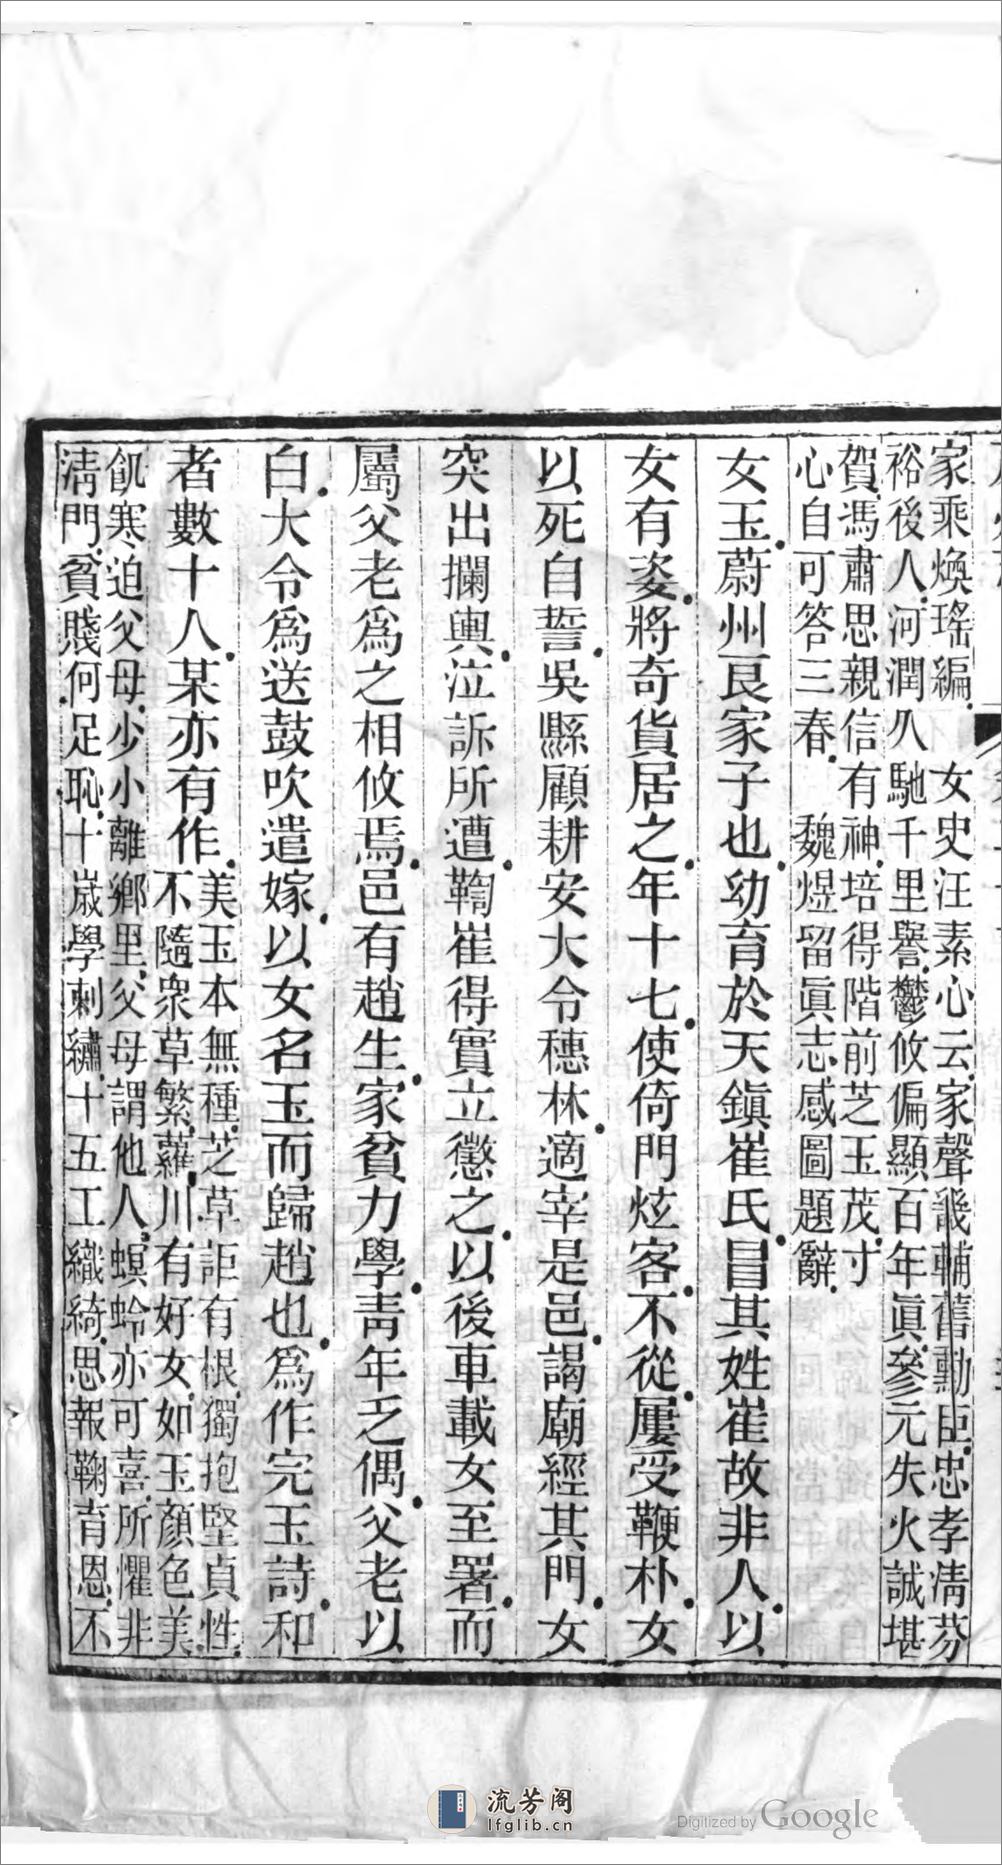 家乘煥瑤編　女史汪素心云家聲畿輔舊勳臣忠孝淸芬
裕後人河潤久馳千里譽鬱攸偏顯百年眞參元失火誠堪
賀馮肅思親信有神培得階前芝玉茂寸
心自可答三春　魏煜留眞志感圖題辭
女玉蔚州良家子也幼育於天鎭崔氏冒其姓崔故非人以
女有姿將奇貨居之年十七使倚門炫客不從屢受鞭朴女
以死自誓吳縣顧耕安大令穗林適宰是邑謁廟經其門女
突出攔輿泣訴所遭鞫崔得實立懲之以後車載女至署而
屬父老爲之相攸焉邑有趙生家貧力學靑年乏偶父老以
白大令爲送鼓吹遣嫁以女名玉而歸趙也爲作完玉詩和
者數十人某亦有作美玉本無種芝草詎有根獨抱堅貞性
不隨衆草繁蘿川有好女如玉顏色美
飢寒迫父母少小離鄉里父母謂他人螟蛉亦可喜所懼非
淸門貧賤何足恥十歲學刺繡十五工織綺思報鞠育恩不
流芳阁
lfglib.cn
Digitized by Google